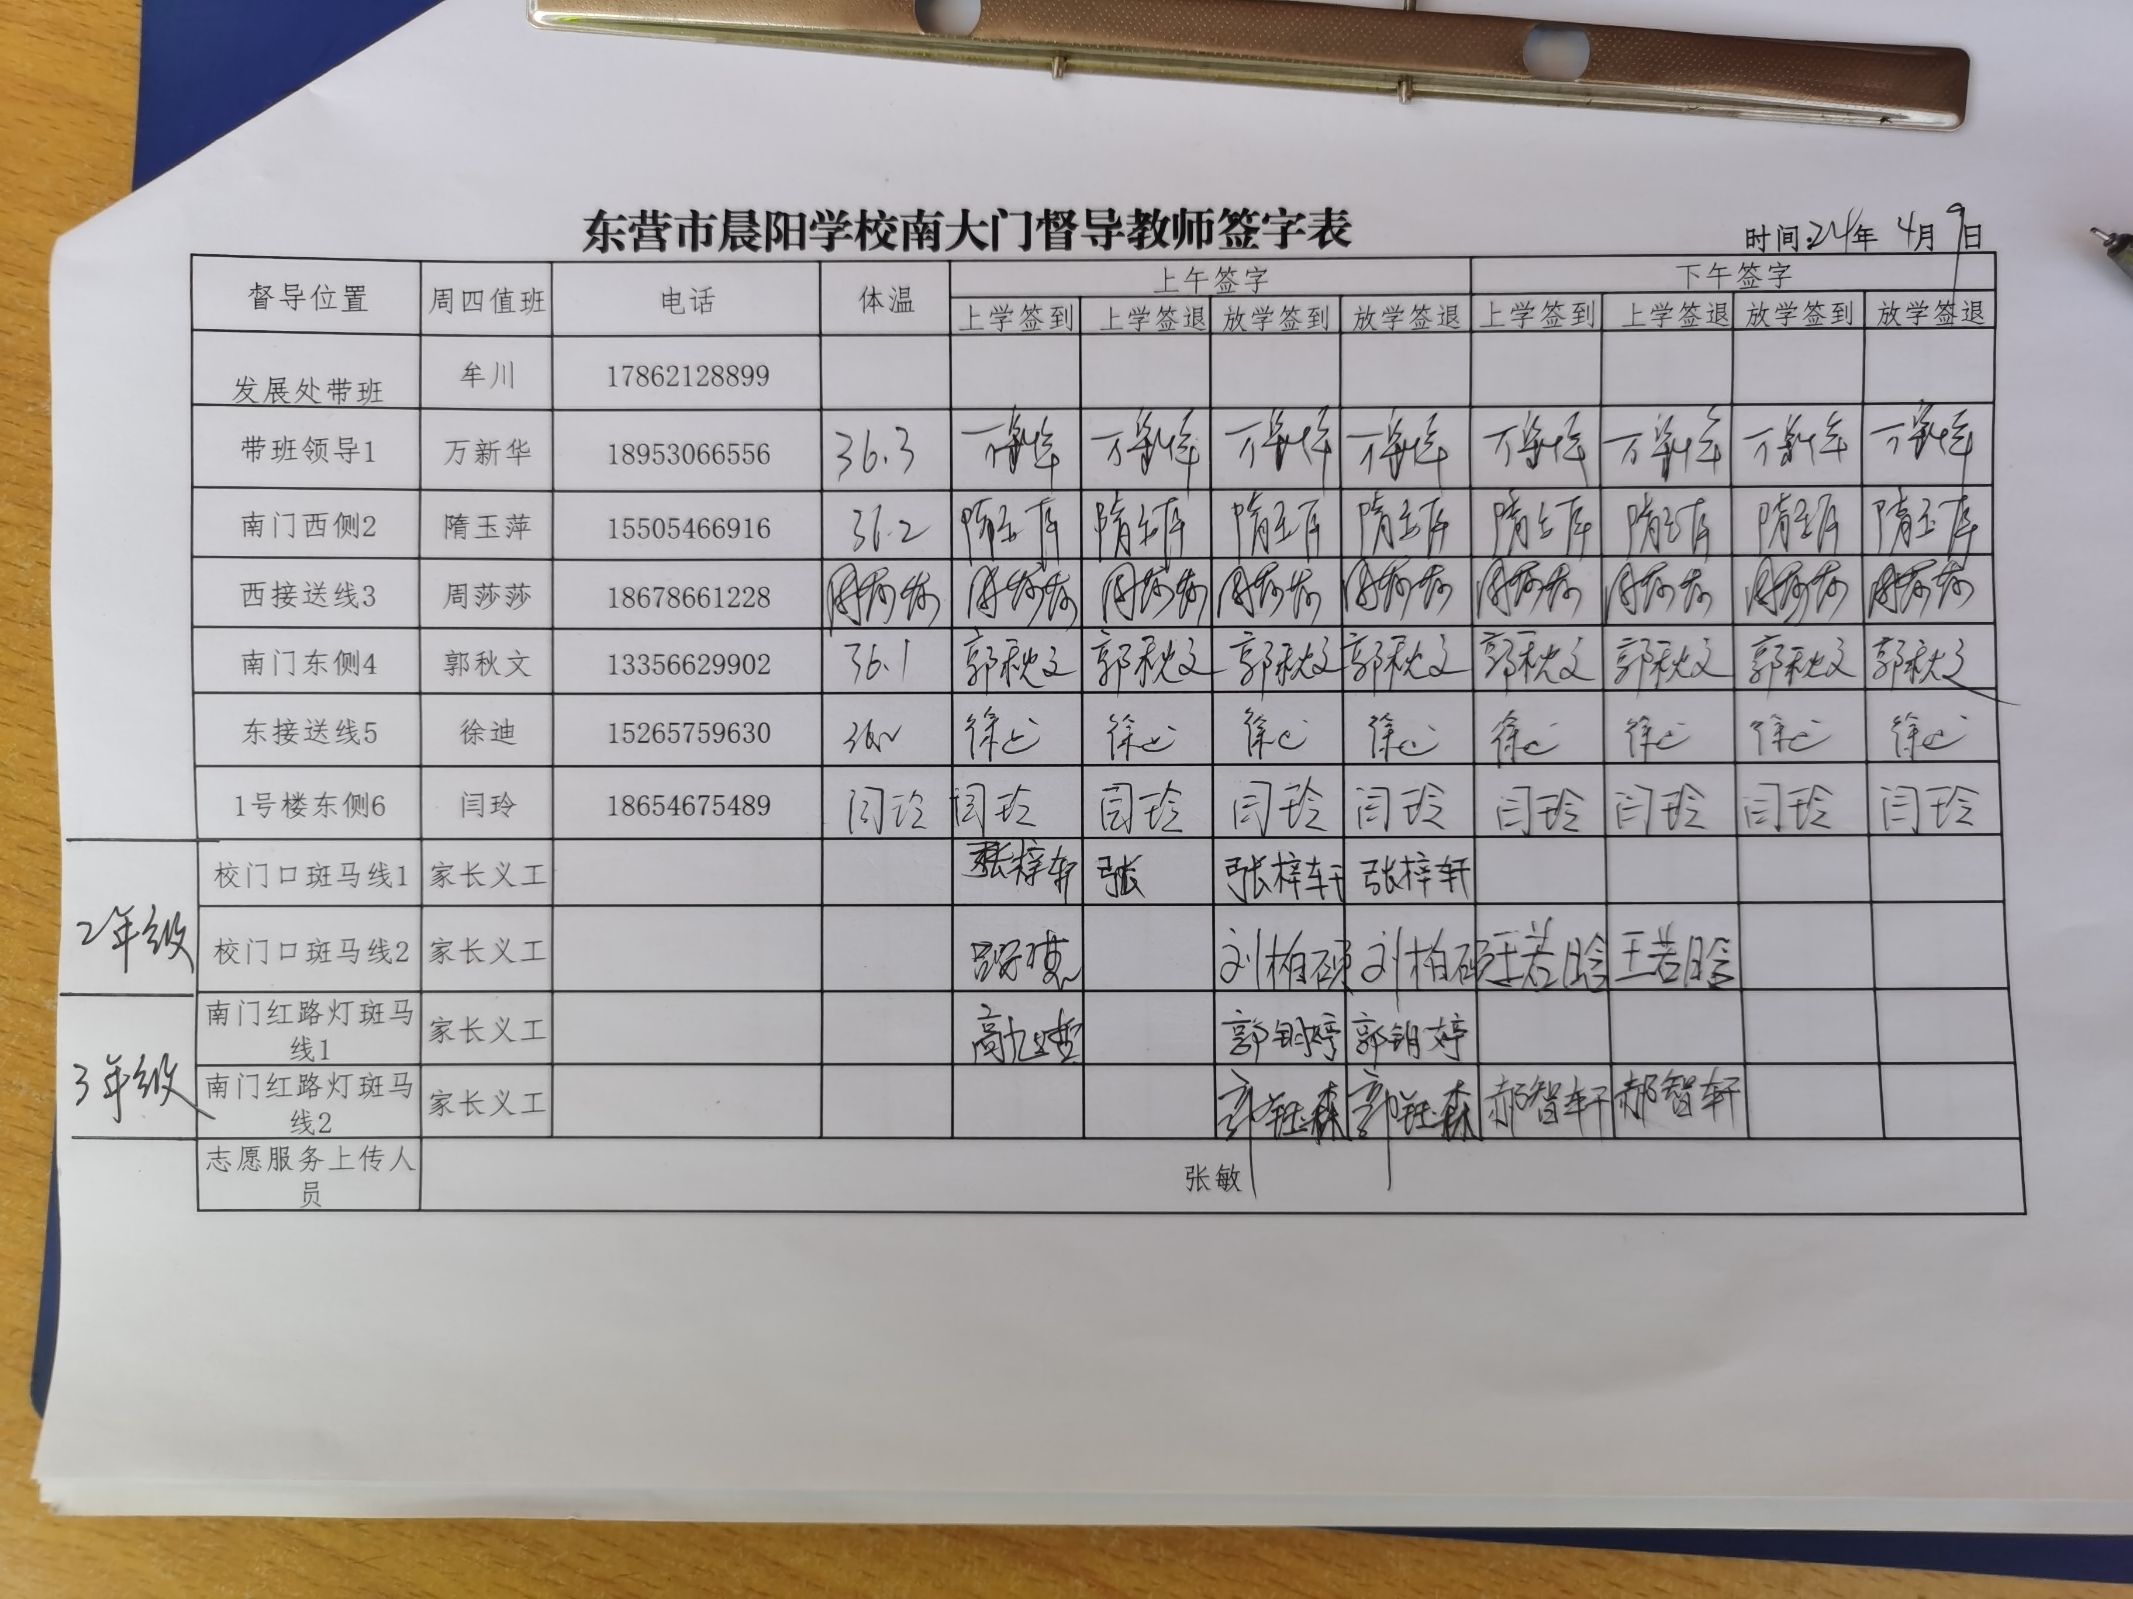 东营市晨阳学校南大门督导教师签字表
时间:24年 4月9日
督导位置 周四值班 电话 体温 上午签字 下午签字
上学签到 上学签退 放学签到 放学签退 上学签到 上学签退 放学签到 放学签退
发展处带班 牟川 17862128899
带班领导1 万新华 18953066556 36.3 万新华 万新华 万新华 万新华 万新华 万新华 万新华 万新华
南门西侧2 隋玉萍 15505466916 36.2 隋玉萍 隋玉萍 隋玉萍 隋玉萍 隋玉萍 隋玉萍 隋玉萍 隋玉萍
西接送线3 周莎莎 18678661228 周莎莎 周莎莎 周莎莎 周莎莎 周莎莎 周莎莎 周莎莎 周莎莎 周莎莎
南门东侧4 郭秋文 13356629902 36.1 郭秋文 郭秋文 郭秋文 郭秋文 郭秋文 郭秋文 郭秋文 郭秋文
东接送线5 徐迪 15265759630 徐迪 徐迪 徐迪 徐迪 徐迪 徐迪 徐迪 徐迪
1号楼东侧6 闫玲 18654675489 闫玲 闫玲 闫玲 闫玲 闫玲 闫玲 闫玲 闫玲 闫玲
校门口斑马线1 家长义工 张梓轩 张 张梓轩 张梓轩
2年级
校门口斑马线2 家长义工 刘柏硕 刘柏硕 王若晗 王若晗
南门红路灯斑马
线1 家长义工 郭钥婷 郭钥婷
3年级
南门红路灯斑马
线2 家长义工 郭钰森 郭钰森 郝智轩 郝智轩
志愿服务上传人
员 张敏